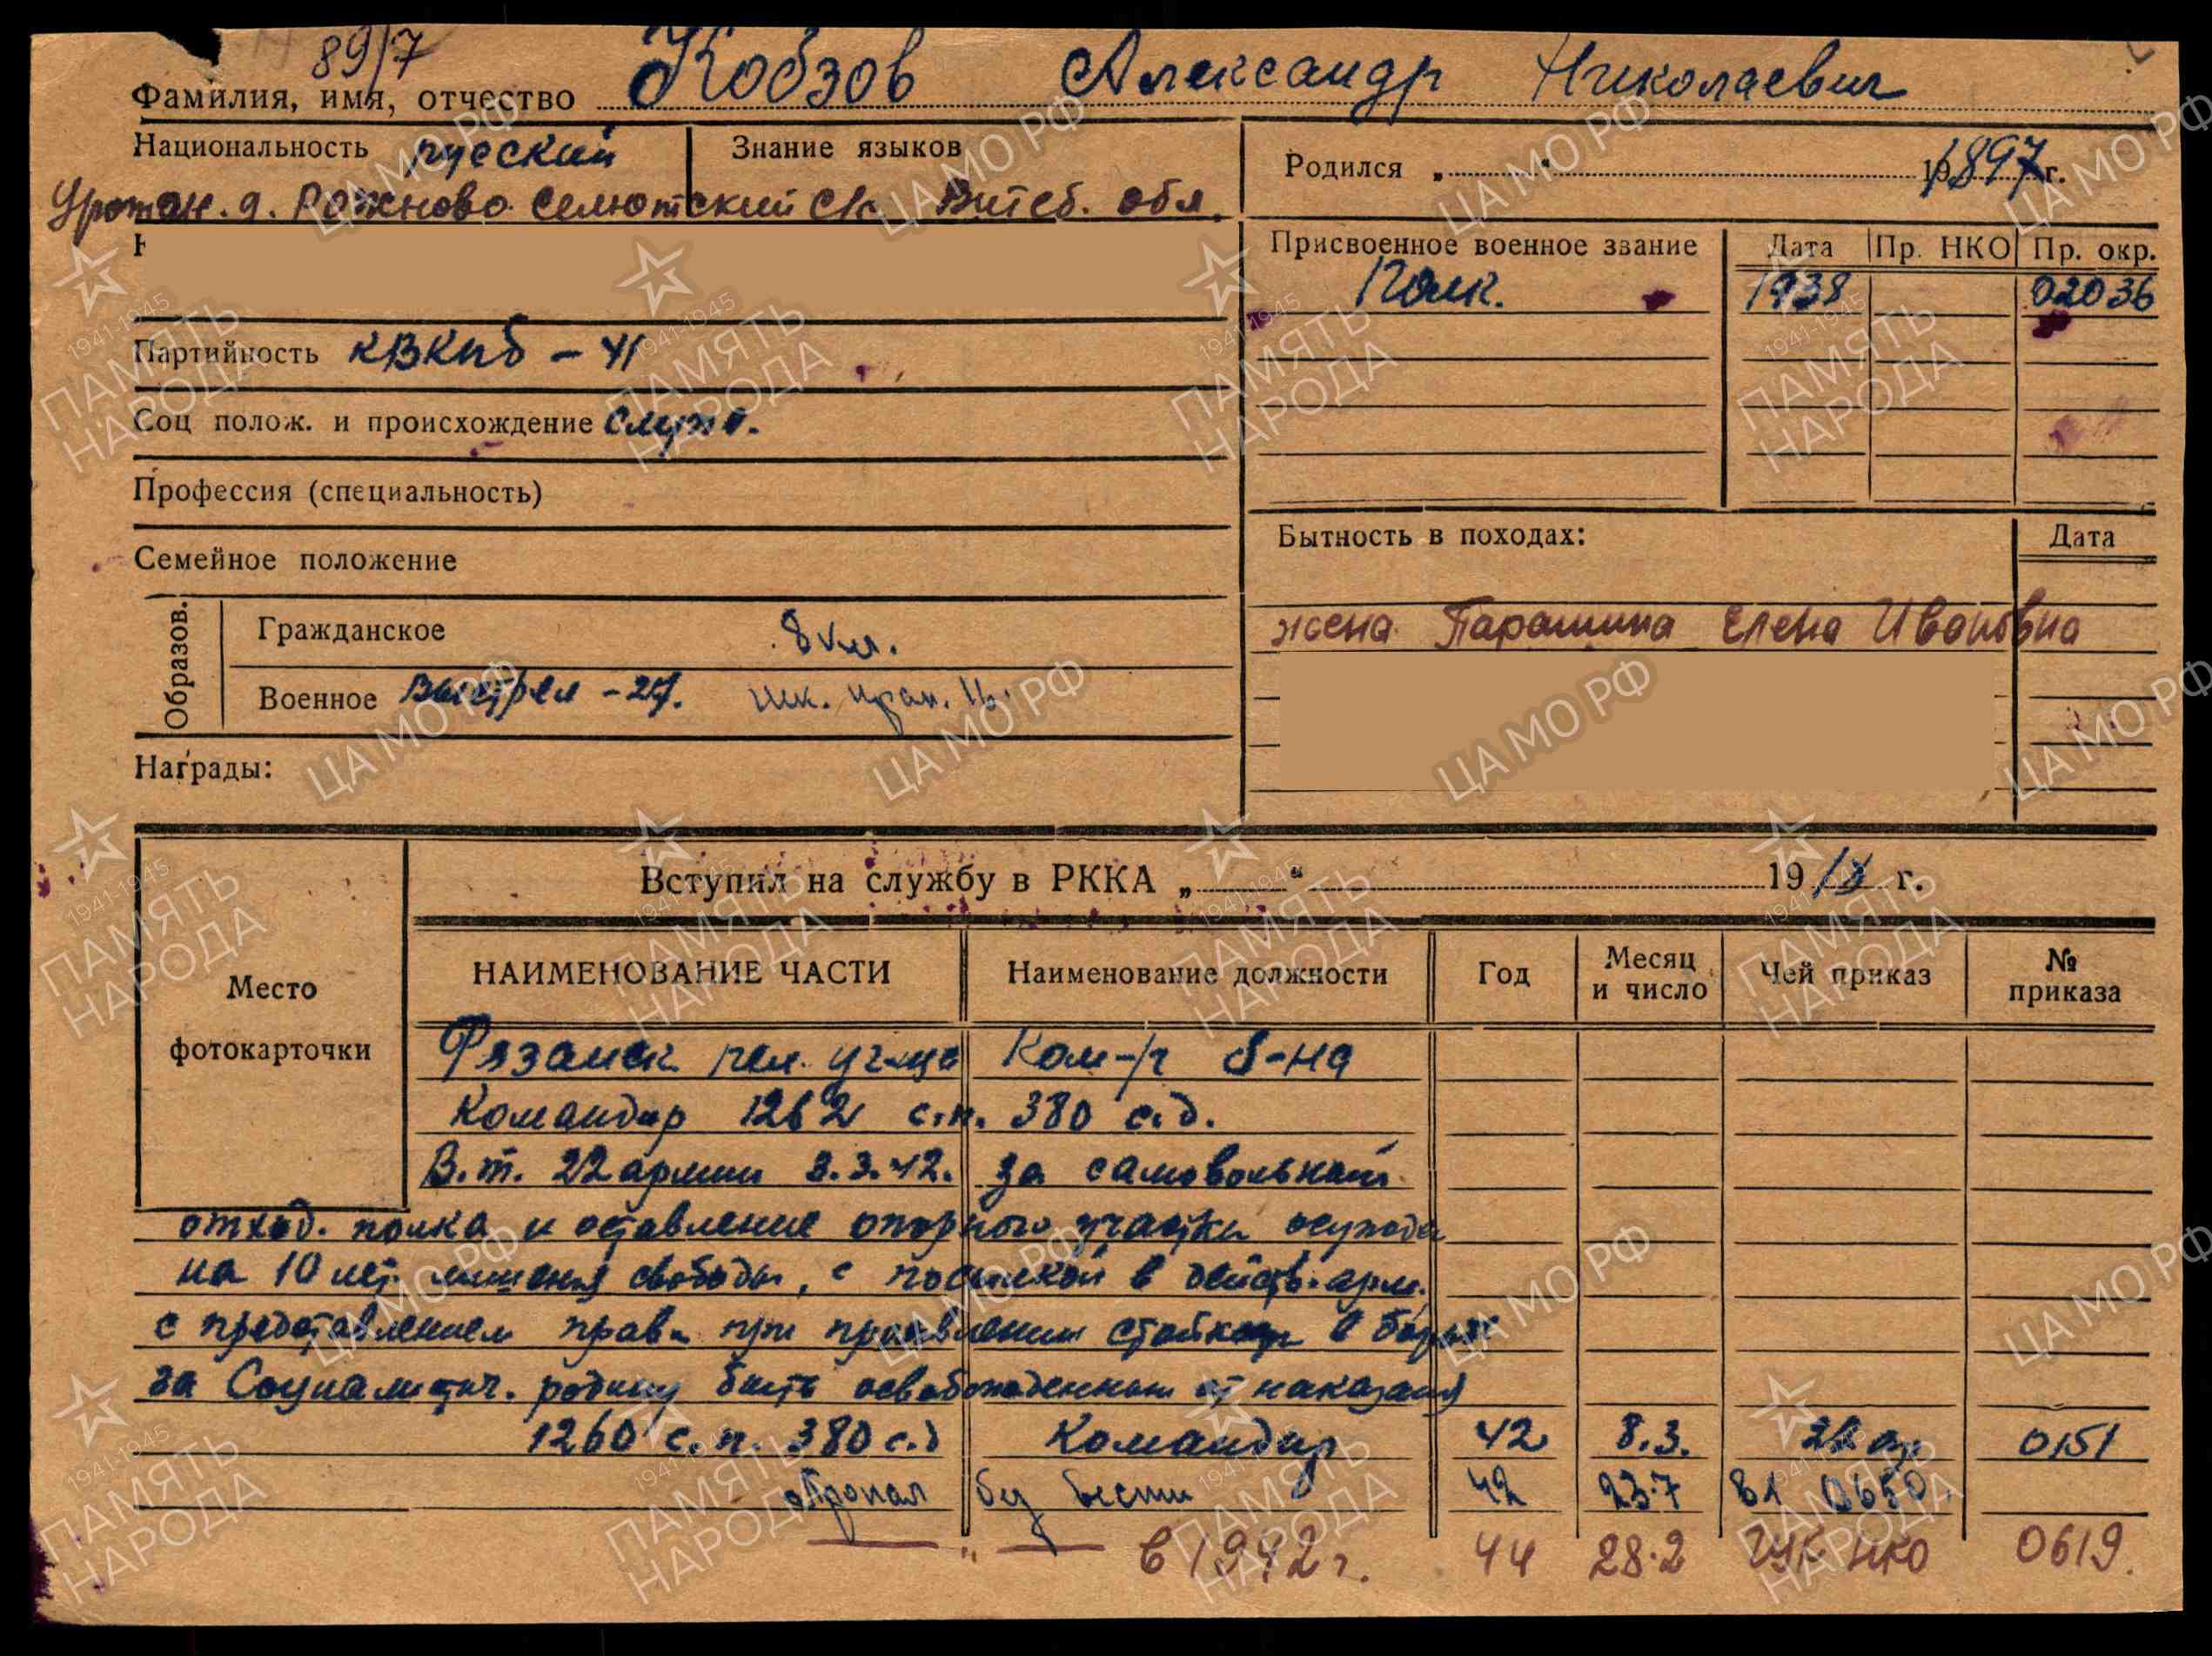 89/7
Фамилия, имя, отчество Кобзов Александр Николаевич
Национальность русский
Знание языков
Родился „ “ 1897 г.
Урожен. д. Рожново Селютский с/с Витеб. обл.
Присвоенное военное звание
Дата
Пр. НКО
Пр. окр.
Полк. 1938 02036
Партийность КВКПб - 41
Соц полож. и происхождение служ.
Профессия (специальность)
Семейное положение
Бытность в походах:
Дата
Образов.
Гражданское 8 кл.
Военное Выстрел - 27. шк. прап. 16.
жена Парамина Елена Ивановна
Награды:
Место
фотокарточки
Вступил на службу в РККА „ “ 1918 г.
НАИМЕНОВАНИЕ ЧАСТИ
Наименование должности
Год
Месяц и число
Чей приказ
№ приказа
Рязанск. пех. уч-ще Ком-р б-на
Командир 1262 с.п. 380 с.д.
В.т. 22 армии 3.3.42. за самовольный
отход. полка и оставление опорного участка осужден
на 10 лет лишения свободы, с посылкой в действ. арм.
с представлением права при проявлении стойкости в борьбе
за Социалистич. родину быть освобожденным от наказания
1260 с.п. 380 с.д Командир 42 8.3. 22 ар 0151
Пропал без вести 42 23.7 вх 0650
— " — в 1942 г. 44 28.2 ГУК НКО 0619.
ЦА МО РФ
1941-1945
ПАМЯТЬ
НАРОДА